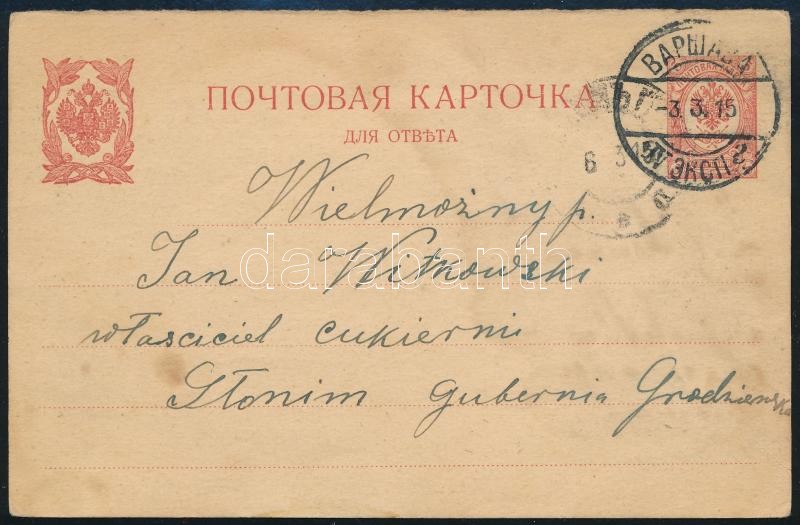 ПОЧТОВАЯ КАРТОЧКА
ДЛЯ ОТВѢТА
ВАРШАВА
-3. 3. 15
ЭКСП
Wielmożny p.
Jan Witkowski
właściciel cukierni
Słonim gubernia Grodzieńska
darabanth